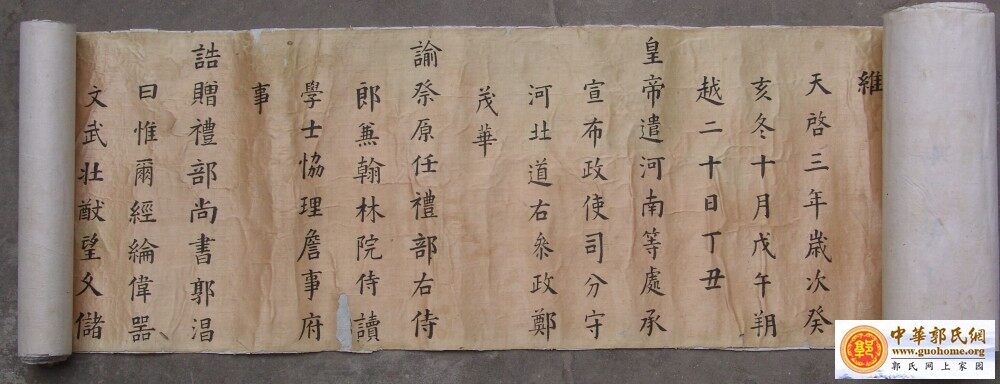 維
天啓三年歳次癸
亥冬十月戊午朔
越二十日丁丑
皇帝遣河南等處承
宣布政使司分守
河北道右叅政鄭
茂華
諭祭原任禮部右侍
郎兼翰林院侍讀
學士恊理詹事府
事
誥贈禮部尚書郭淐
曰惟爾經綸偉器
文武壯猷望久儲
中華郭氏網
www.guohome.org
郭氏网上家园